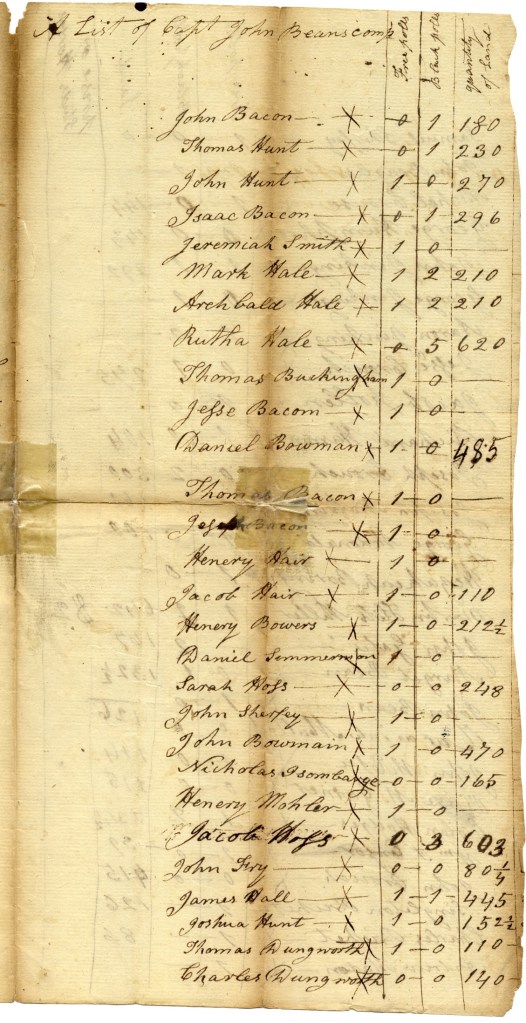 A List of Capt John Beanscomp Free polls Black polls quantity of Land
John Bacon — X — 0 1 180
Thomas Hunt — X — 0 1 230
John Hunt — X 1 - 0 - 270
Isaac Bacon — X - 0 - 1 - 296
Jeremiah Smith X - 1 0 —
Mark Hale — X - 1 2 210
Archbald Hale X - 1 2 210
Rutha Hale — X - 0 5 620
Thomas Buckingham X 1 - 0 —
Jesse Bacom — X - 1 - 0 —
Daniel Bowman X - 1 - 0 - 485
Thomas Bacon X - 1 - 0 —
Joseph Bacon — X - 1 - 0 —
Henery Hair X — 1 0 —
Jacob Hair — X — 1 - 0 - 110
Henery Bowers — X - 1 - 0 - 212½
Daniel Simmermon X 1 - 0 —
Sarah Hoss — X — 0 - 0 - 248
John Sherfey — X - 1 - 0 —
John Bowmain X - 1 - 0 - 470
Nicholas Isombarge X - 0 - 0 - 165
Henery Mohler X - 1 - 0 —
Jacob Hoss X 0 3 603
John Fry — X — 0 0 80¼
James Hall — X - 1 - 1 - 445
Joshua Hunt — X - 1 - 0 - 152½
Thomas Dungworth X - 1 - 0 - 110 -
Charles Dungworth X - 0 - 0 - 140